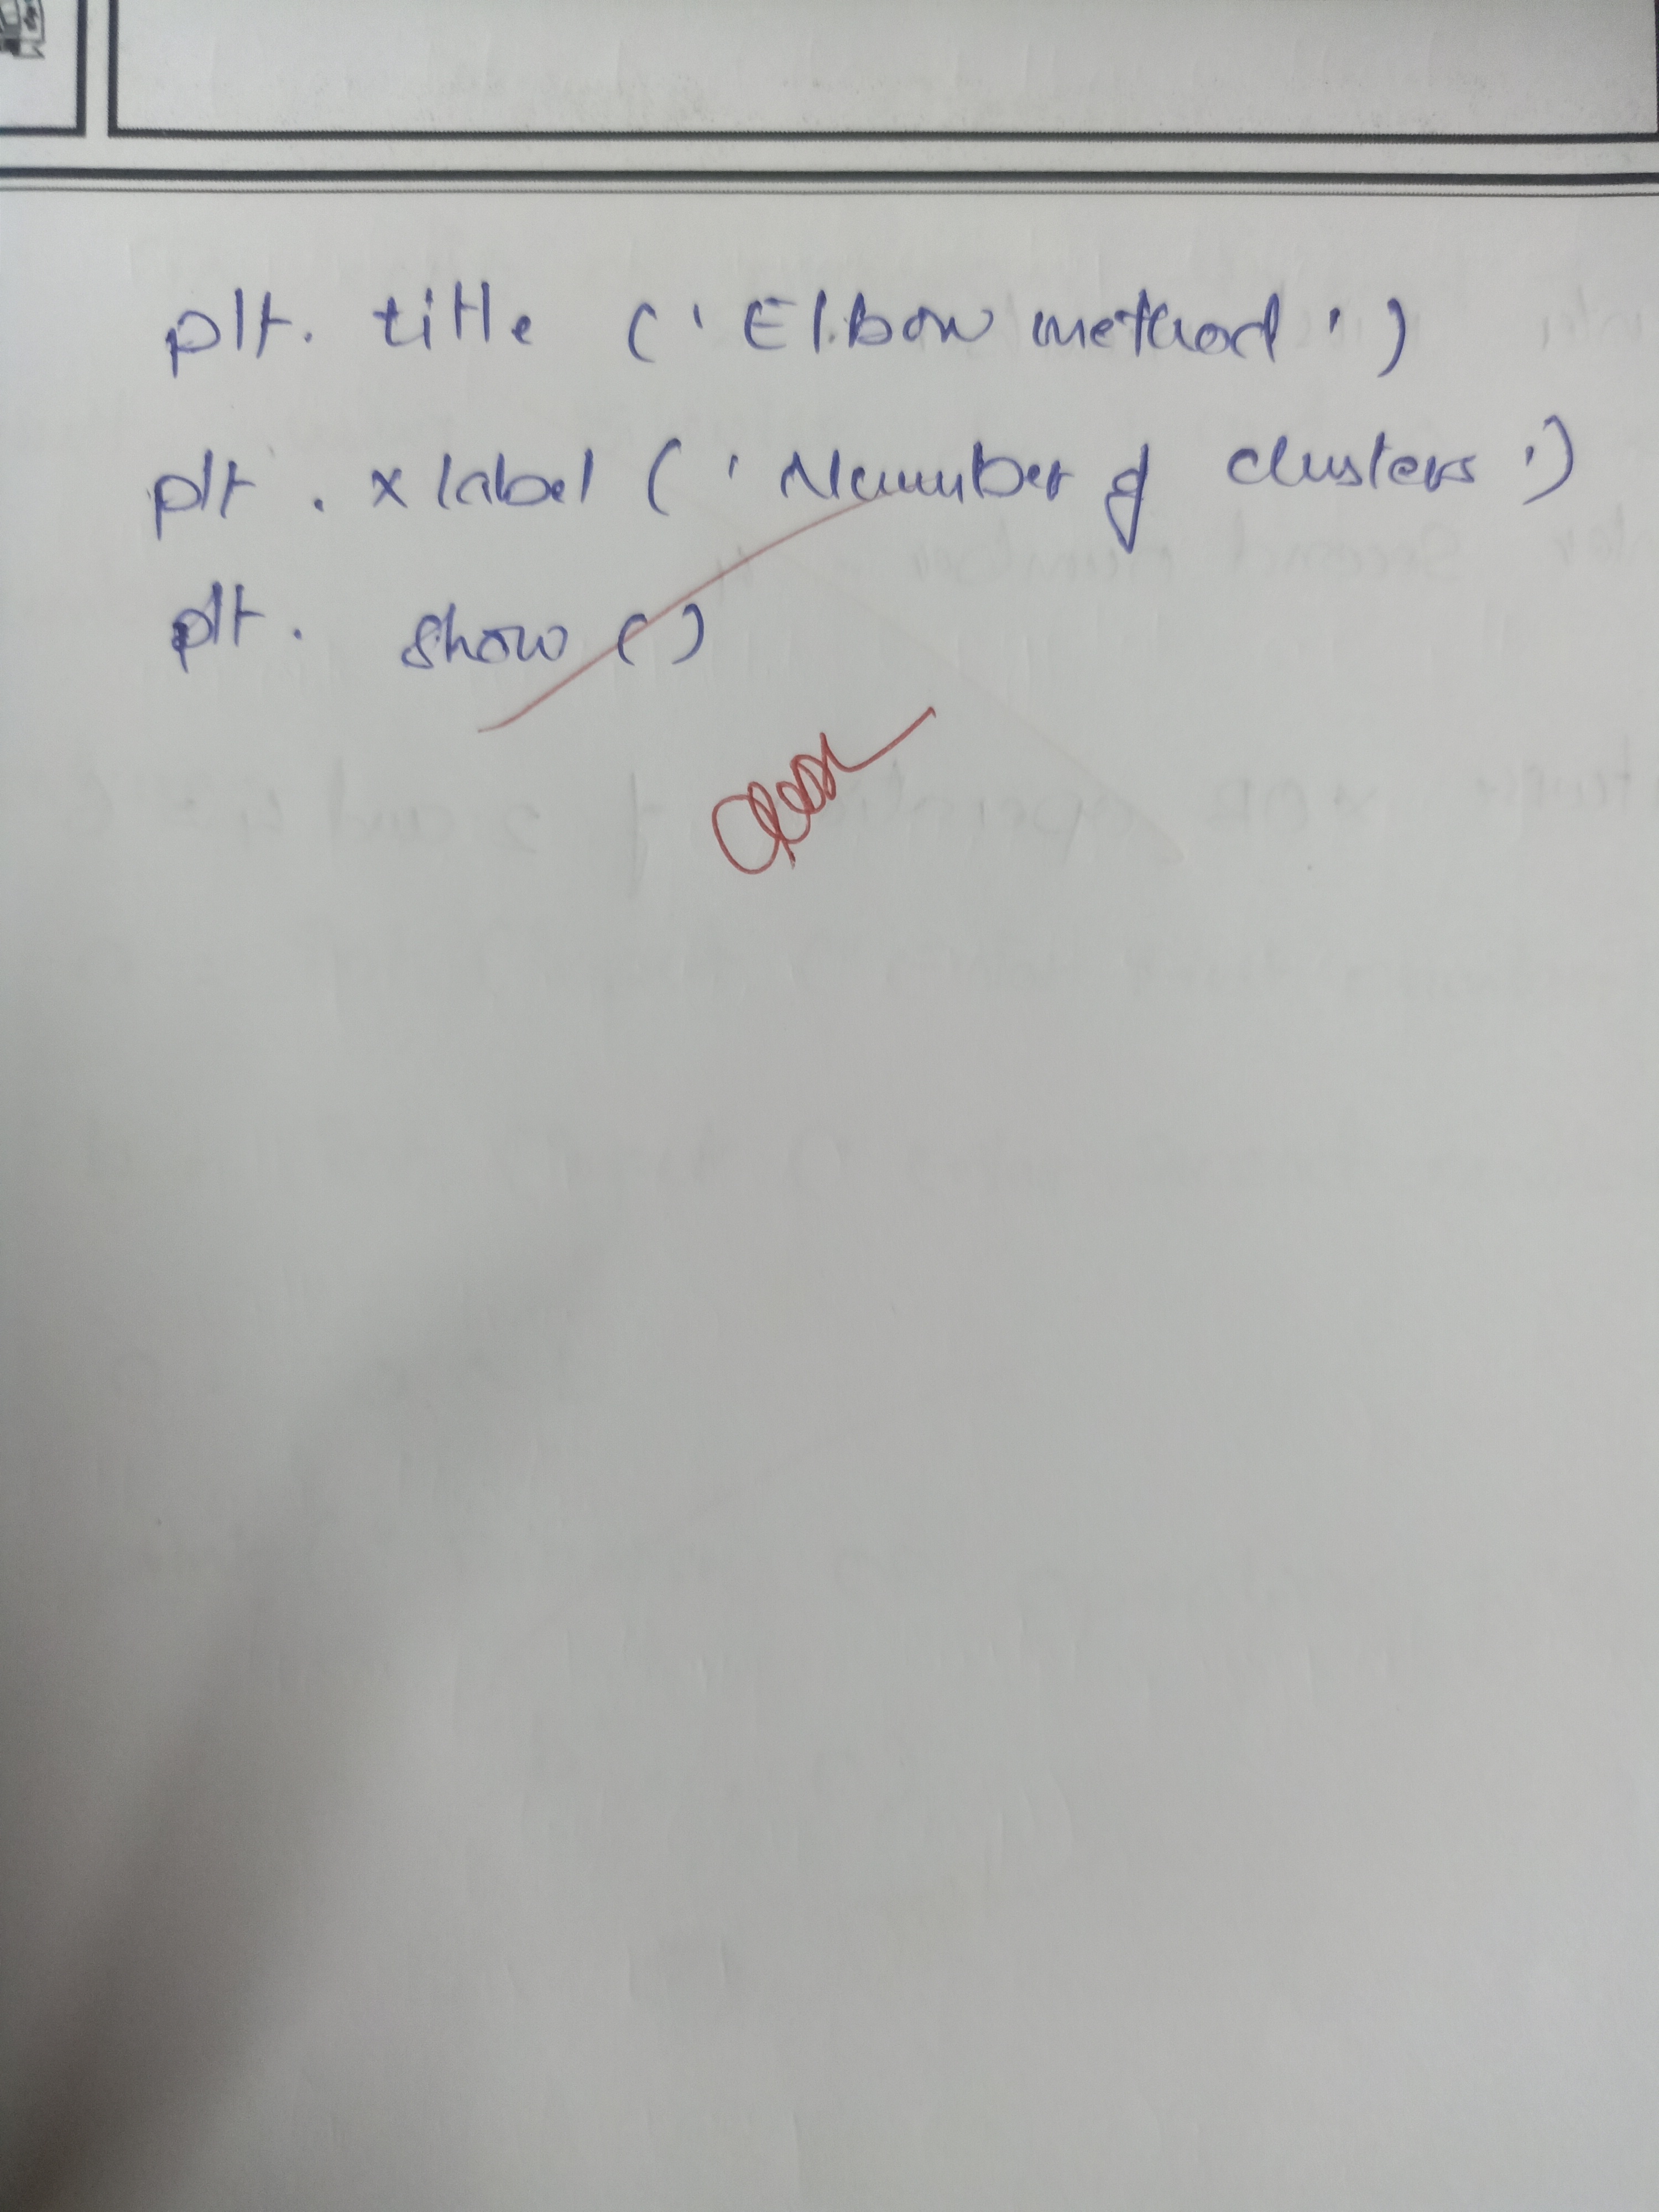 plt. title ('Elbow method')
plt. xlabel ('Number of clusters')
plt. show ()